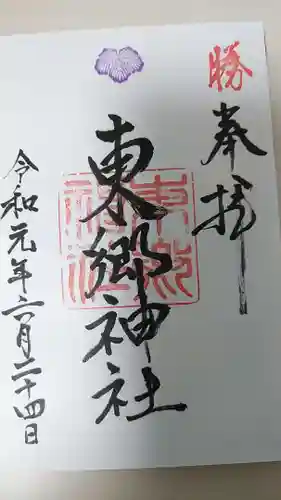 勝
奉拝
東郷神社
東郷神社
令和元年六月二十四日